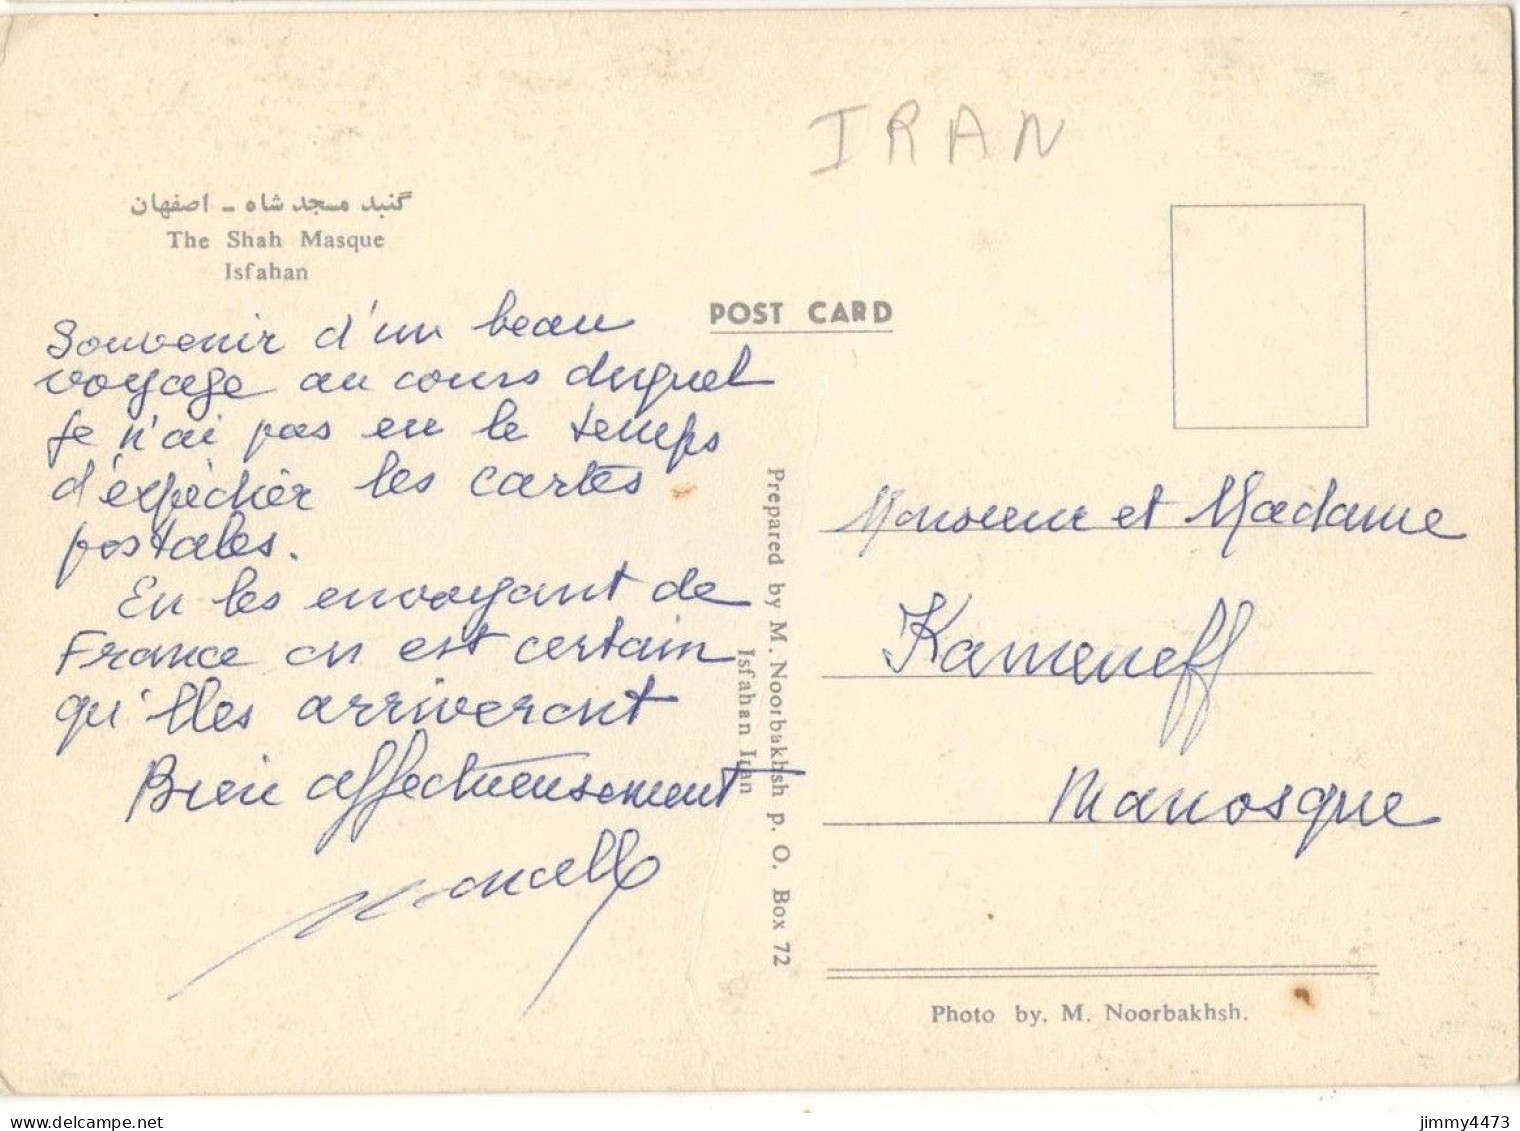 IRAN
گنبد مسجد شاه - اصفهان
The Shah Masque
Isfahan
POST CARD
Souvenir d'un beau
voyage au cours duquel
je n'ai pas eu le temps
d'expédier les cartes
postales.
En les envoyant de
France on est certain
qu'elles arriveront
Bien affectueusement
Prepared by M. Noorbakhsh p. O. Box 72
Isfahan Iran
Monsieur et Madame
Kameneff
Manosque
Photo by. M. Noorbakhsh.
jimmy4473